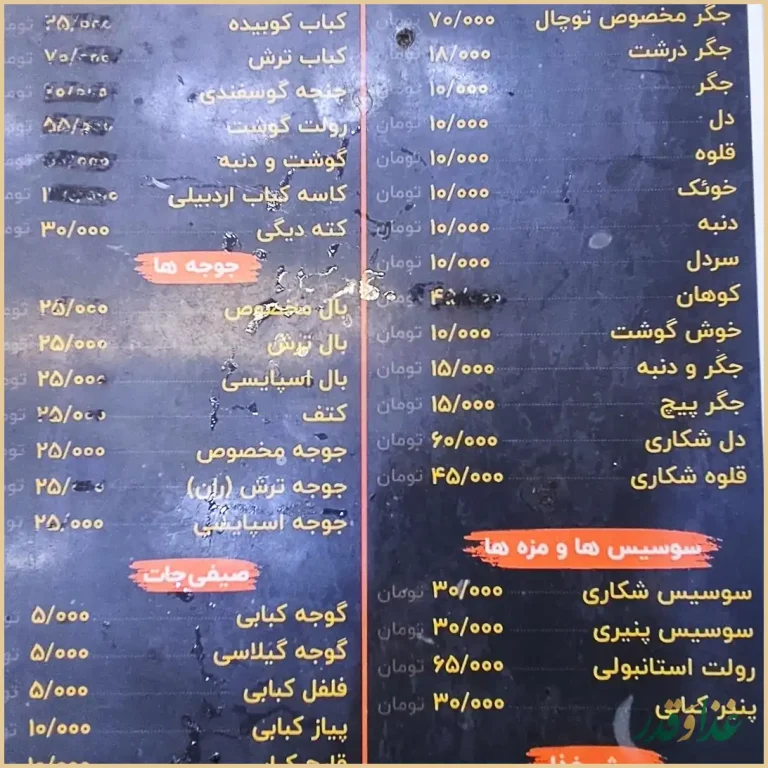 جگر مخصوص توچال ۷۰/۰۰۰ تومان
جگر درشت ۱۸/۰۰۰ تومان
جگر ۱۰/۰۰۰ تومان
دل ۱۰/۰۰۰ تومان
قلوه ۱۰/۰۰۰ تومان
خوئک ۱۰/۰۰۰ تومان
دنبه ۱۰/۰۰۰ تومان
سردل ۱۰/۰۰۰ تومان
کوهان تومان
خوش گوشت ۱۰/۰۰۰ تومان
جگر و دنبه ۱۵/۰۰۰ تومان
جگر پیچ ۱۵/۰۰۰ تومان
دل شکاری ۶۰/۰۰۰ تومان
قلوه شکاری ۴۵/۰۰۰ تومان
سوسیس ها و مزه ها
سوسیس شکاری ۳۰/۰۰۰ تومان
سوسیس پنیری ۳۰/۰۰۰ تومان
رولت استانبولی ۶۵/۰۰۰ تومان
پنیر کبابی ۳۰/۰۰۰ تومان
کباب کوبیده
کباب ترش
جنجه گوسفندی
رولت گوشت
گوشت و دنبه
کاسه کباب اردبیلی
کته دیگی ۳۰/۰۰۰
جوجه ها
بال مخصوص ۲۵/۰۰۰
بال ترش ۲۵/۰۰۰
بال اسپایسی ۲۵/۰۰۰
کتف ۲۵/۰۰۰
جوجه مخصوص ۲۵/۰۰۰
جوجه ترش (ران)
جوجه اسپایسی ۲۵/۰۰۰
صیفی‌جات
گوجه کبابی ۵/۰۰۰
گوجه گیلاسی ۵/۰۰۰
فلفل کبابی ۵/۰۰۰
پیاز کبابی ۱۰/۰۰۰
غذا و قدر